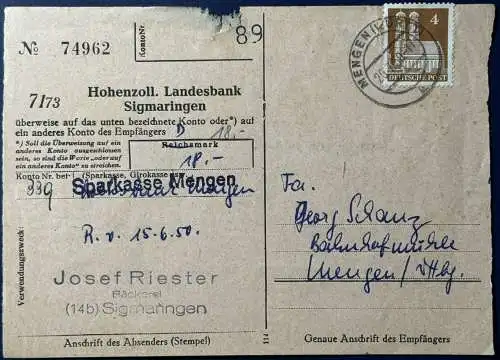 № 74962
KontoNr.
89
7173
Hohenzoll. Landesbank
Sigmaringen
überweise auf das unten bezeichnete Konto oder*) auf
ein anderes Konto des Empfängers D 18,-
*) Soll die Überweisung auf ein
anderes Konto ausgeschlossen
sein, so sind die Worte „oder auf
ein anderes Konto" zu streichen.
Reichsmark
18,-
Konto Nr. bei (Sparkasse, Girokasse
339 Sparkasse Mengen
Mengen
Verwendungszweck:
R. v. 15.6.50.
Josef Riester
Bäckerei
(14b) Sigmaringen
Anschrift des Absenders (Stempel)
114
MENGEN
4
DEUTSCHE POST
Fa.
Georg Schanz
Bahnhofmühle
Mengen/Wttbg.
Genaue Anschrift des Empfängers